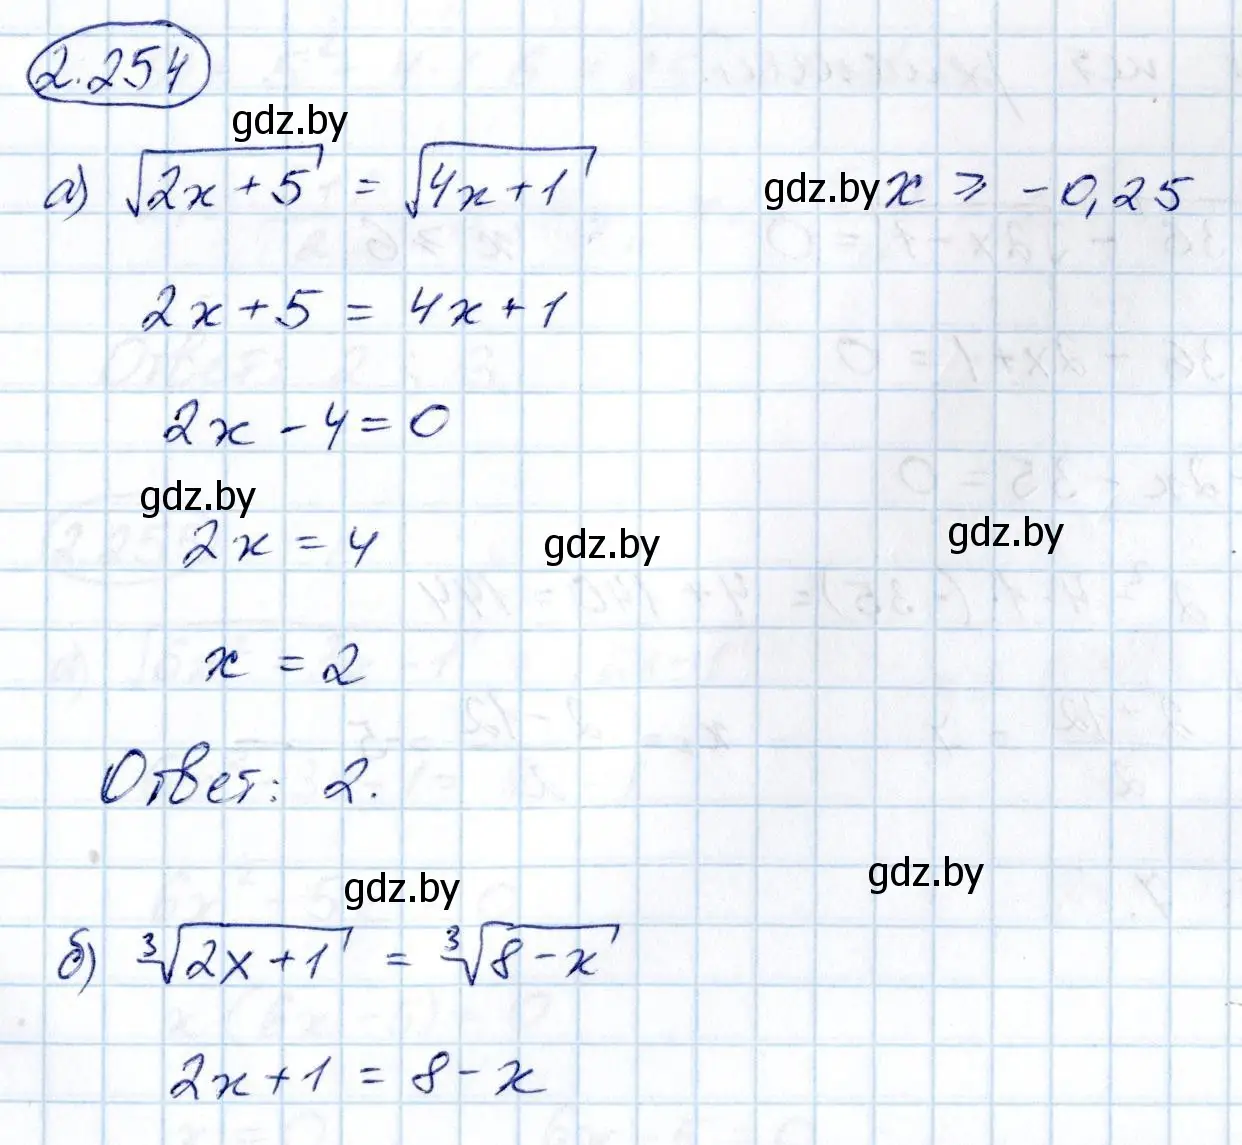 2.254
gdz.by
а) √(2x + 5) = √(4x + 1) gdz.by x ⩾ -0,25
2x + 5 = 4x + 1
2x - 4 = 0
gdz.by
2x = 4 gdz.by gdz.by
x = 2
Ответ: 2.
gdz.by gdz.by
б) ∛(2x + 1) = ∛(8 - x)
2x + 1 = 8 - x